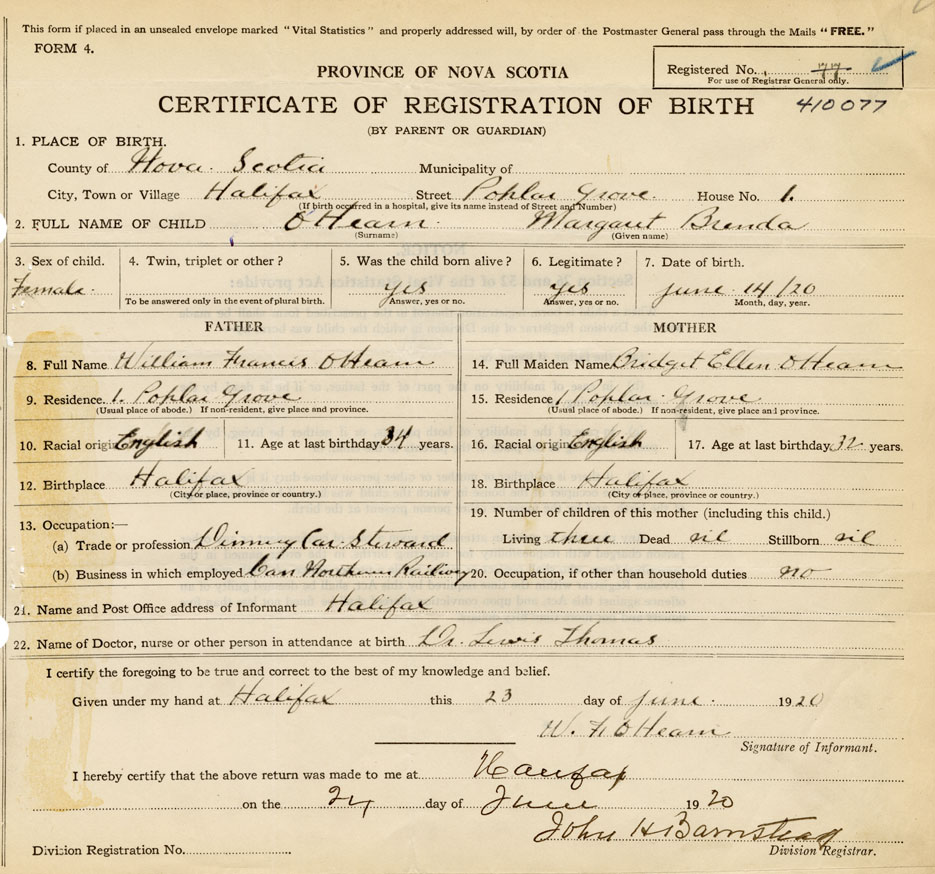 This form if placed in an unsealed envelope marked "Vital Statistics" and properly addressed will, by order of the Postmaster General pass through the Mails "FREE."
FORM 4.
PROVINCE OF NOVA SCOTIA
Registered No. 77
For use of Registrar General only.
CERTIFICATE OF REGISTRATION OF BIRTH 410077
(BY PARENT OR GUARDIAN)
1. PLACE OF BIRTH.
County of Nova Scotia Municipality of
City, Town or Village Halifax Street Poplar Grove House No. 1.
(If birth occurred in a hospital, give its name instead of Street and Number)
2. FULL NAME OF CHILD O'Hearn Margaret Brenda
(Surname) (Given name)
3. Sex of child. 4. Twin, triplet or other? 5. Was the child born alive? 6. Legitimate? 7. Date of birth.
Female. yes yes june 14/20
To be answered only in the event of plural birth. Answer, yes or no. Answer, yes or no. Month, day, year.
FATHER MOTHER
8. Full Name William Francis OHearn 14. Full Maiden Name Bridget Ellen OHearn
9. Residence 1. Poplar Grove 15. Residence 1 Poplar Grove
(Usual place of abode.) If non-resident, give place and province. (Usual place of abode.) If non-resident, give place and province.
10. Racial origin English 11. Age at last birthday 34 years. 16. Racial origin English 17. Age at last birthday 32 years.
12. Birthplace Halifax 18. Birthplace Halifax
(City or place, province or country.) (City or place, province or country.)
13. Occupation:— 19. Number of children of this mother (including this child.)
(a) Trade or profession Dinning Car Steward Living three Dead nil Stillborn nil
(b) Business in which employed Can Northern Railway 20. Occupation, if other than household duties no
21. Name and Post Office address of Informant Halifax
22. Name of Doctor, nurse or other person in attendance at birth Dr. Lewis Thomas
I certify the foregoing to be true and correct to the best of my knowledge and belief.
Given under my hand at Halifax this 23 day of june. 1920
W. F. OHearn
Signature of Informant.
I hereby certify that the above return was made to me at Halifax
on the 24 day of June 1920
John H Barnstead
Division Registration No. Division Registrar.